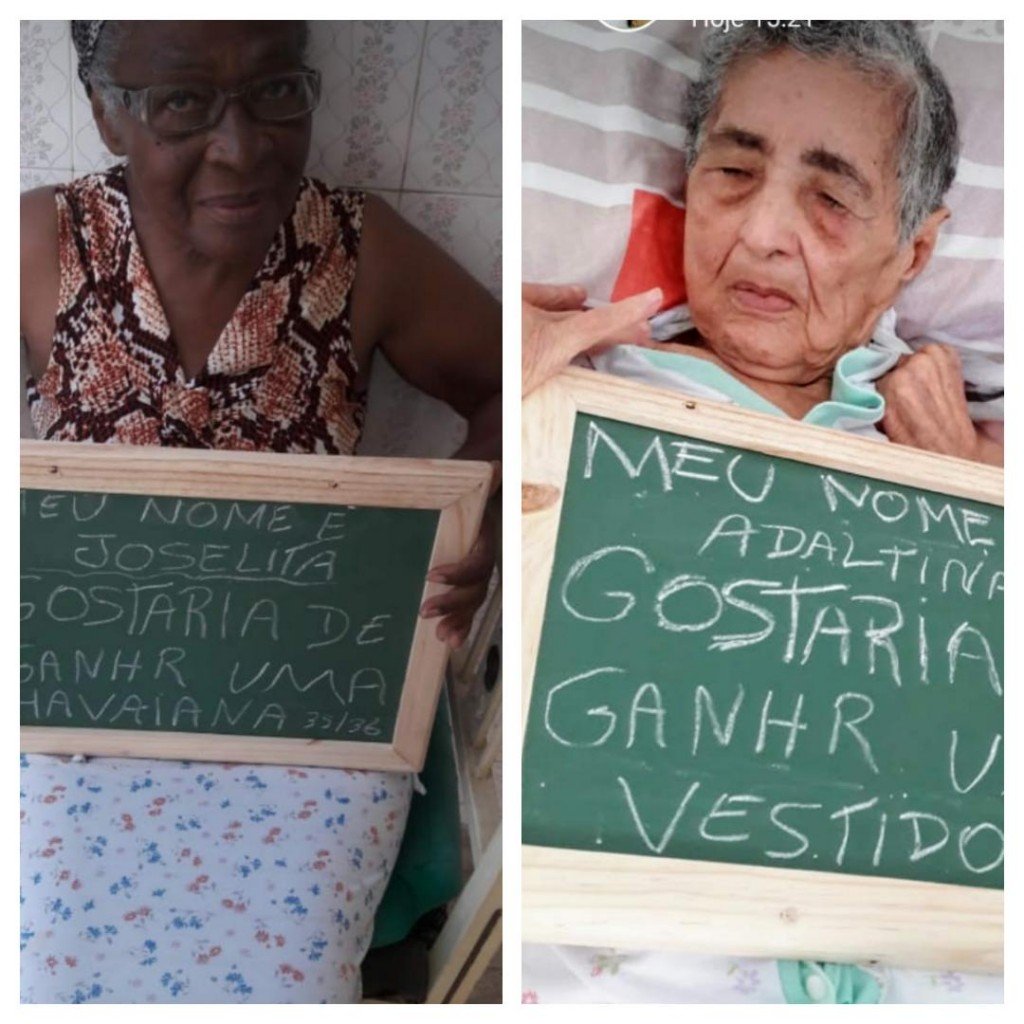 Hoje 15:21
MEU NOME É
JOSELITA
GOSTARIA DE
GANHR UMA
HAVAIANA 35/36
MEU NOME
ADALTINA
GOSTARIA
GANHR U
VESTIDO